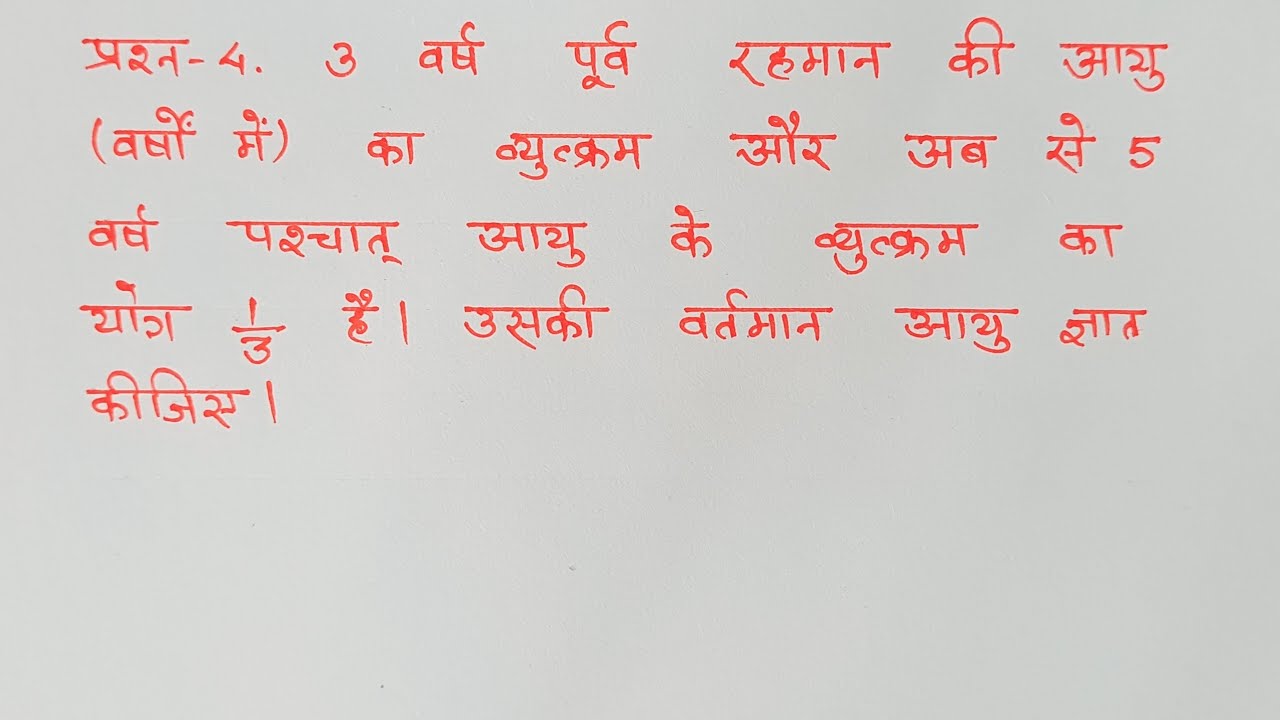 प्रश्न-4. 3 वर्ष पूर्व रहमान की आयु
(वर्षों में) का व्युत्क्रम और अब से 5
वर्ष पश्चात् आयु के व्युत्क्रम का
योग 1/3 है। उसकी वर्तमान आयु ज्ञात
कीजिए।